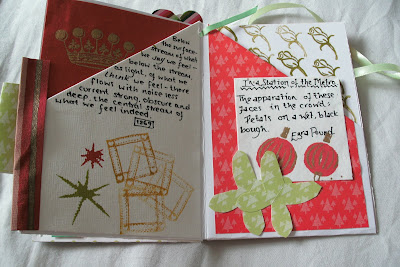 Below
the surface
stream of what
we say we feel -
below the stream,
as light, of what we
think we feel - there
flows with noise less
current strong, obscure and
deep, the central stream of
what we feel indeed.
1869
In a Station of the Metro
The apparation of these
faces in the crowd:
Petals on a wet, black
bough.
Ezra Pound